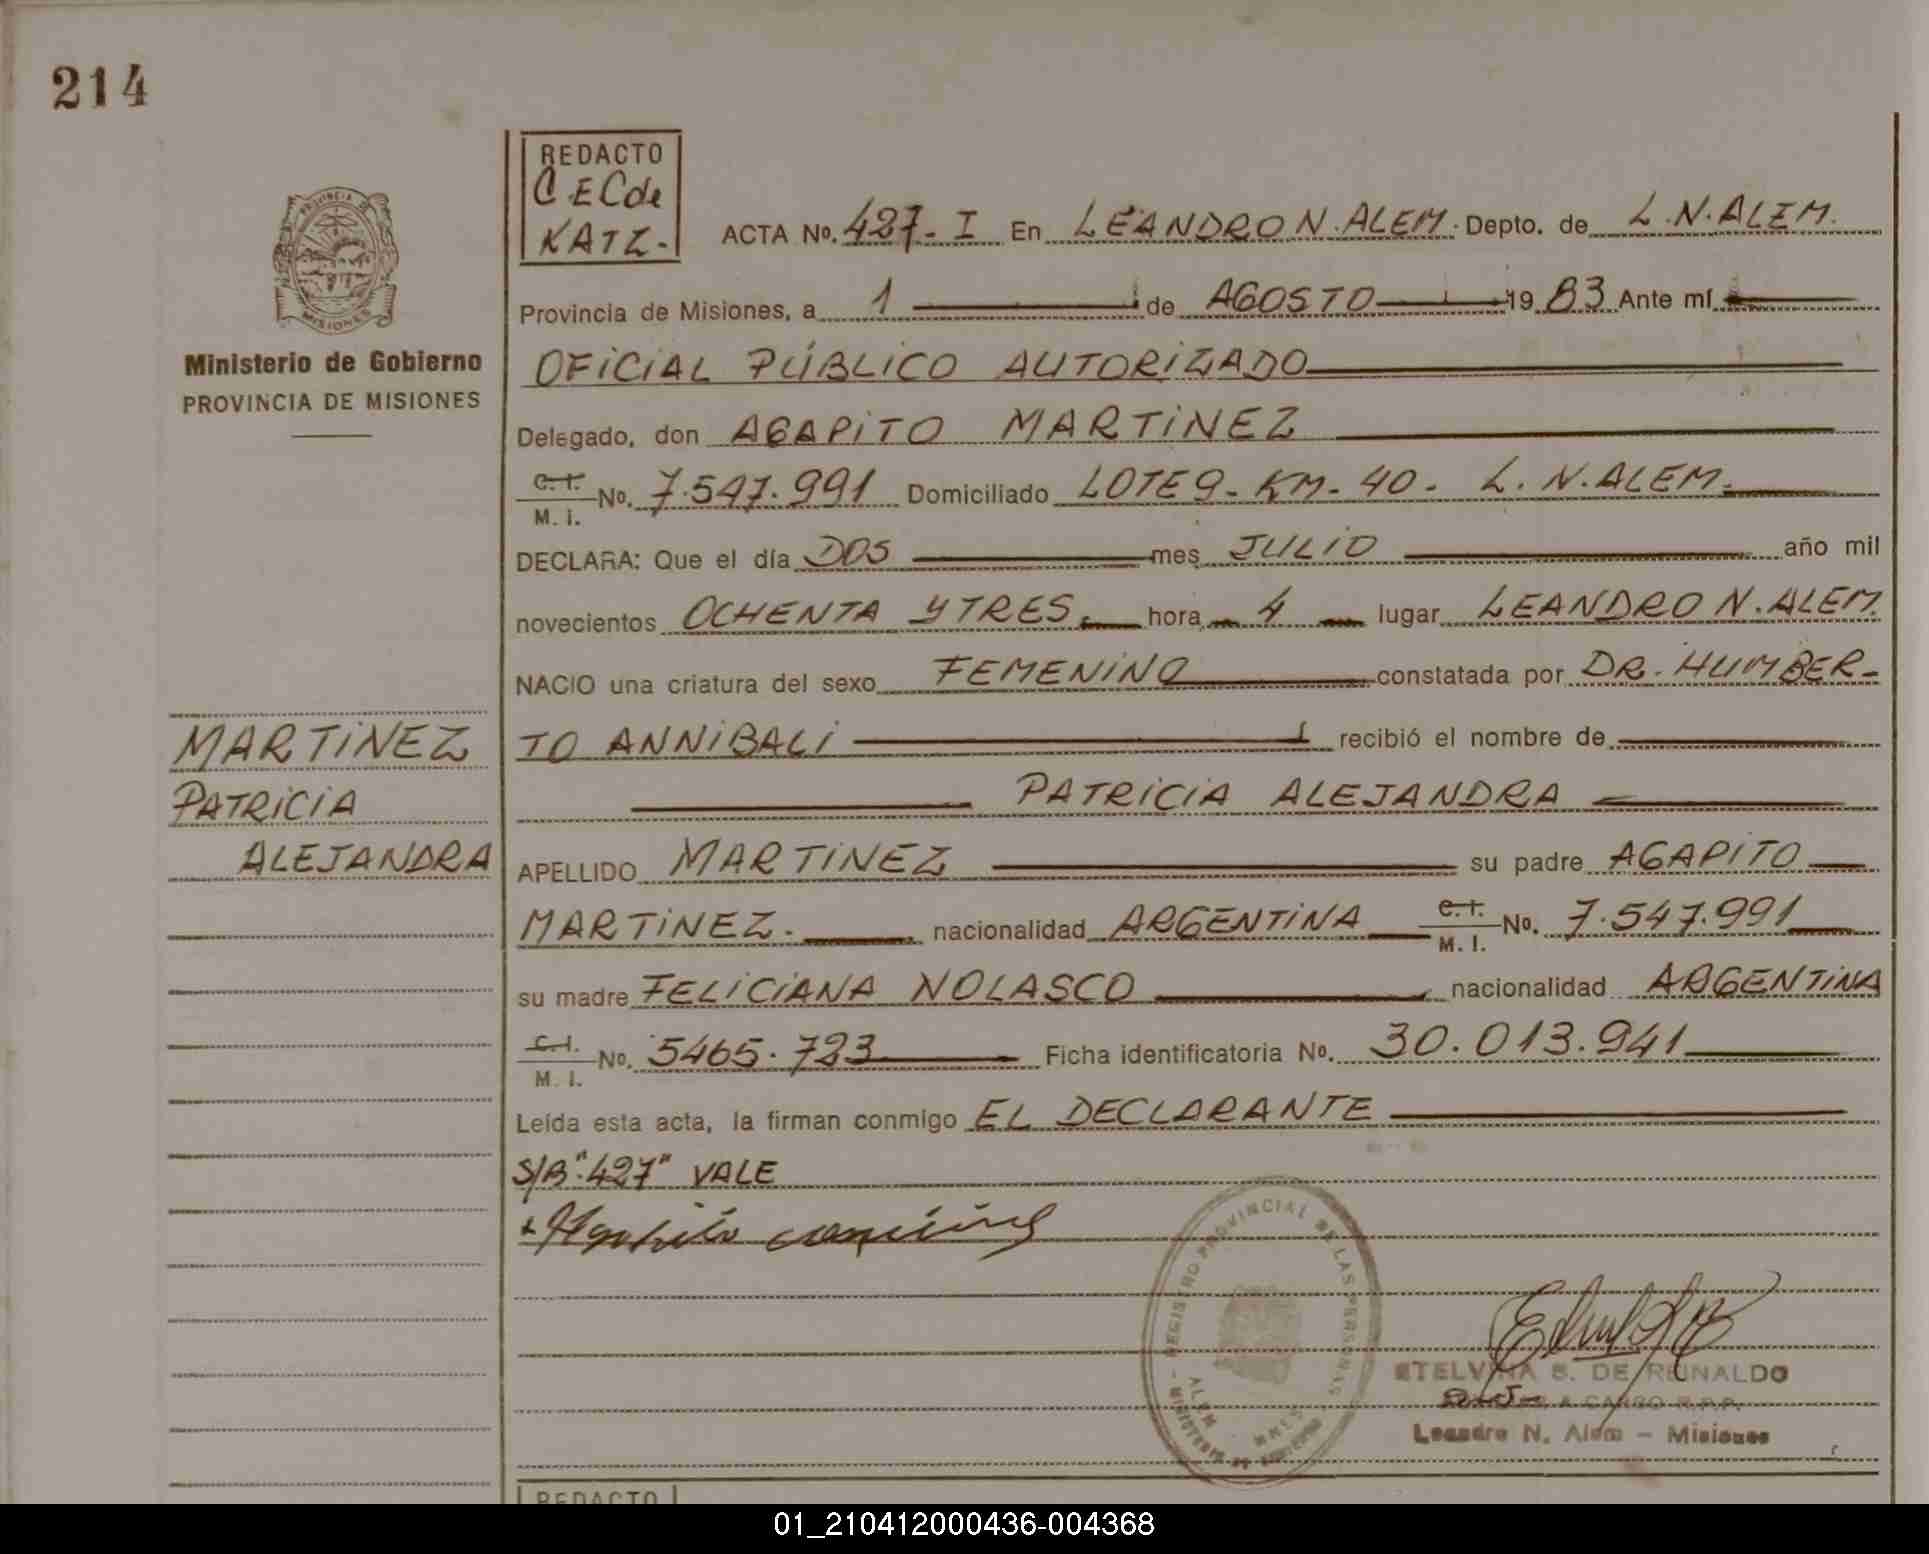 214
REDACTO
C E C de
KATZ.-
PROVINCIA DE
MISIONES
Ministerio de Gobierno
PROVINCIA DE MISIONES
ACTA No. 427-I En LEANDRO N. ALEM. Depto. de L.N. ALEM.
Provincia de Misiones, a 1 de AGOSTO 1983 Ante mí
OFICIAL PÚBLICO AUTORIZADO
Delegado, don AGAPITO MARTINEZ
C. I. / M. I. No. 7.547.991 Domiciliado LOTE 9- KM- 40- L. N. ALEM.
DECLARA: Que el día DOS mes JULIO año mil
novecientos OCHENTA Y TRES. hora 4 lugar LEANDRO N. ALEM.
NACIO una criatura del sexo FEMENINO constatada por DR. HUMBER-
TO ANNIBALI recibió el nombre de
PATRICIA ALEJANDRA
APELLIDO MARTINEZ su padre AGAPITO
MARTINEZ. nacionalidad ARGENTINA C. I. / M. I. No. 7.547.991
su madre FELICIANA NOLASCO nacionalidad ARGENTINA
C. I. / M. I. No. 5465.723 Ficha identificatoria No. 30.013.941
Leída esta acta, la firman conmigo EL DECLARANTE
S/B "427" VALE
MARTINEZ
PATRICIA
ALEJANDRA
REGISTRO PROVINCIAL DE LAS PERSONAS
ALEM MNES
MINISTERIO DE GOBIERNO
ETELVINA B. DE REINALDO
A CARGO R.P.P.
Leandro N. Alem - Misiones
REDACTO
01_210412000436-004368